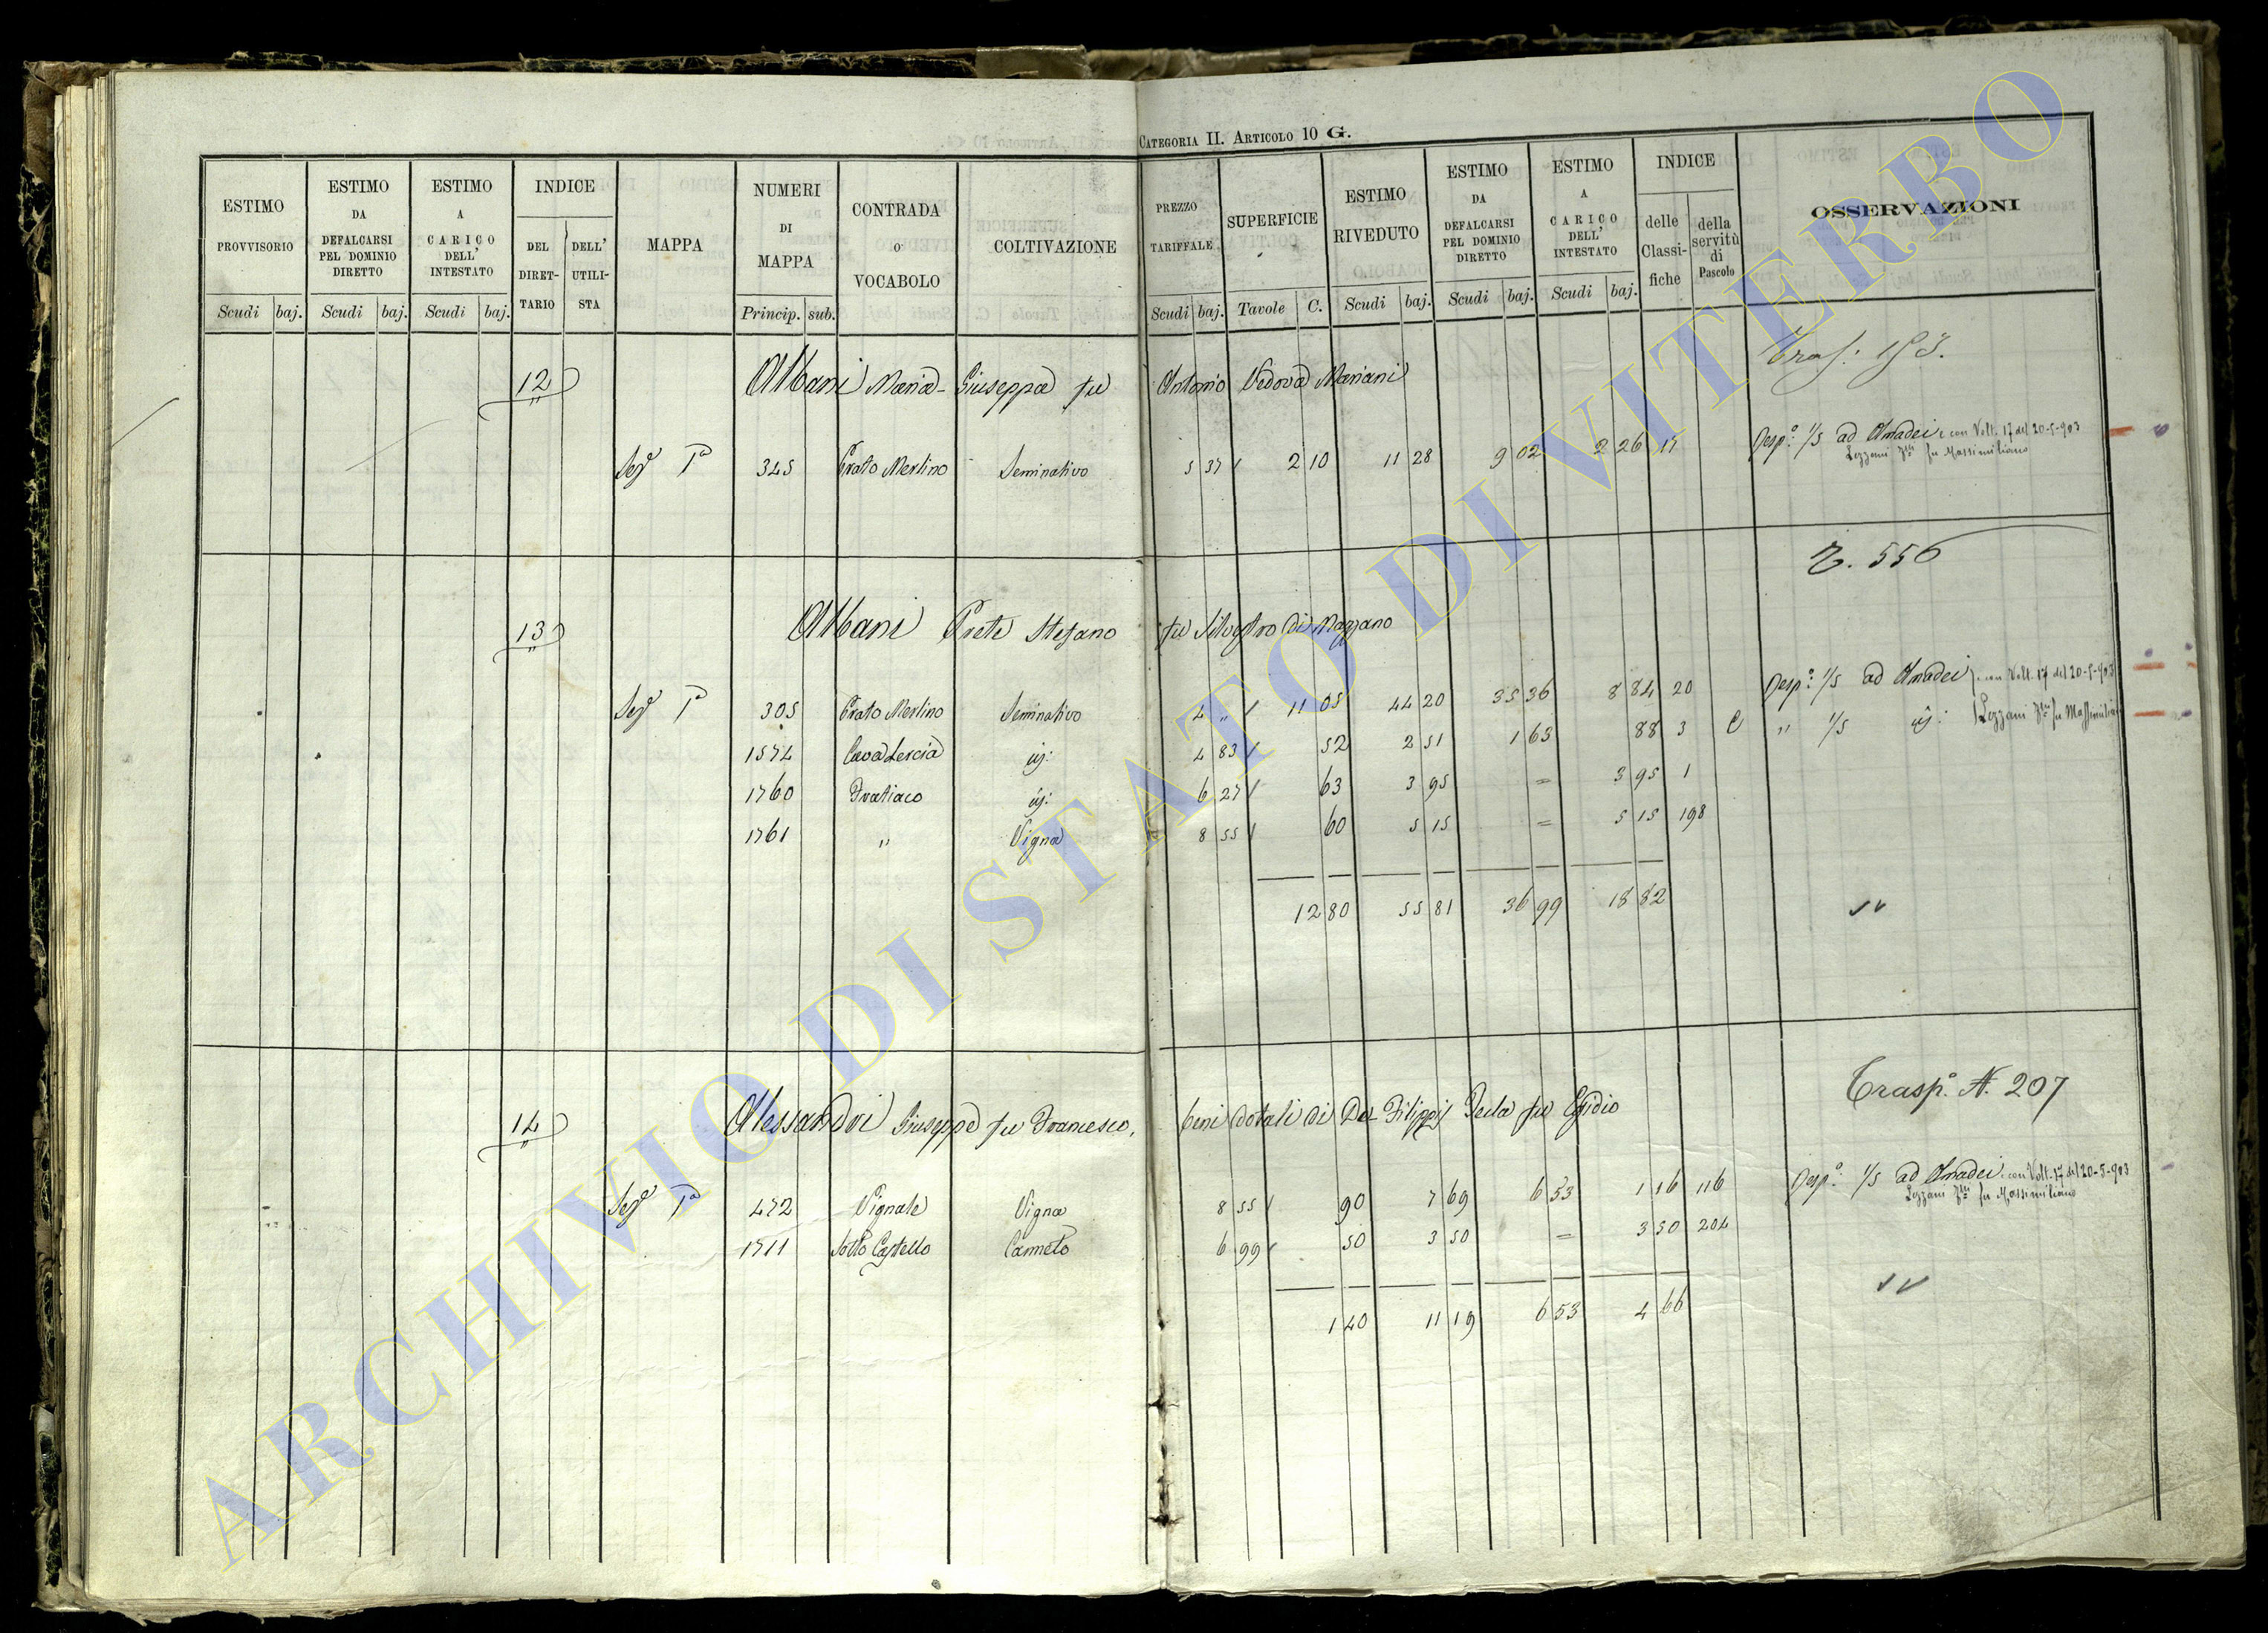 CATEGORIA II. ARTICOLO 10 G.
ESTIMO PROVVISORIO Scudi baj. ESTIMO DA DEFALCARSI PEL DOMINIO DIRETTO Scudi baj. ESTIMO A CARICO DELL' INTESTATO Scudi baj. INDICE DEL DIRET-TARIO DELL' UTILI-STA MAPPA NUMERI DI MAPPA Princip. sub. CONTRADA o VOCABOLO COLTIVAZIONE PREZZO TARIFFALE Scudi baj. SUPERFICIE Tavole C. ESTIMO RIVEDUTO Scudi baj. ESTIMO DA DEFALCARSI PEL DOMINIO DIRETTO Scudi baj. ESTIMO A CARICO DELL' INTESTATO Scudi baj. INDICE delle Classi-fiche della servitù di Pascolo OSSERVAZIONI
12 Albani Maria Giuseppa fu Antonio Vedova Mariani
Sez.e Pa 345 Prato Merlino Seminativo 5 37 2 10 11 28 9 02 2 26 17 Resp.e 1/5 ad Amadei e con Volt. 17 del 20-5-903
Lezzani fu Massimiliano
T. 556
13 Albani Prete Stefano fu Silvestro di Mazzano
Sez.e Pa 305 Prato Merlino Seminativo 4 " 11 05 44 20 35 36 8 84 20 Resp.e 1/5 ad Amadei con Volt. 17 del 20-5-903
1574 id: 4 83 52 2 51 1 63 88 3 C " 1/5 id: Lezzani fu Massimiliano
1760 Fratiaco id: 6 27 63 3 95 = 3 95 1
1761 " Vigna 8 55 60 5 15 = 5 15 198
12 80 55 81 36 99 18 82
Trasp.o N. 207
14 Alessandri Giuseppe fu Francesco, beni dotali di De Filippis Tecla fu Egidio
Sez.e Pa 472 Vignale Vigna 8 55 90 7 69 6 53 1 16 116 Resp.e 1/5 ad Amadei con Volt. 17 del 20-5-903
Lezzani fu Massimiliano
1711 Sotto Castello Canneto 6 99 50 3 50 = 3 50 204
1 40 11 19 6 53 4 66
ARCHIVIO DI STATO DI VITERBO